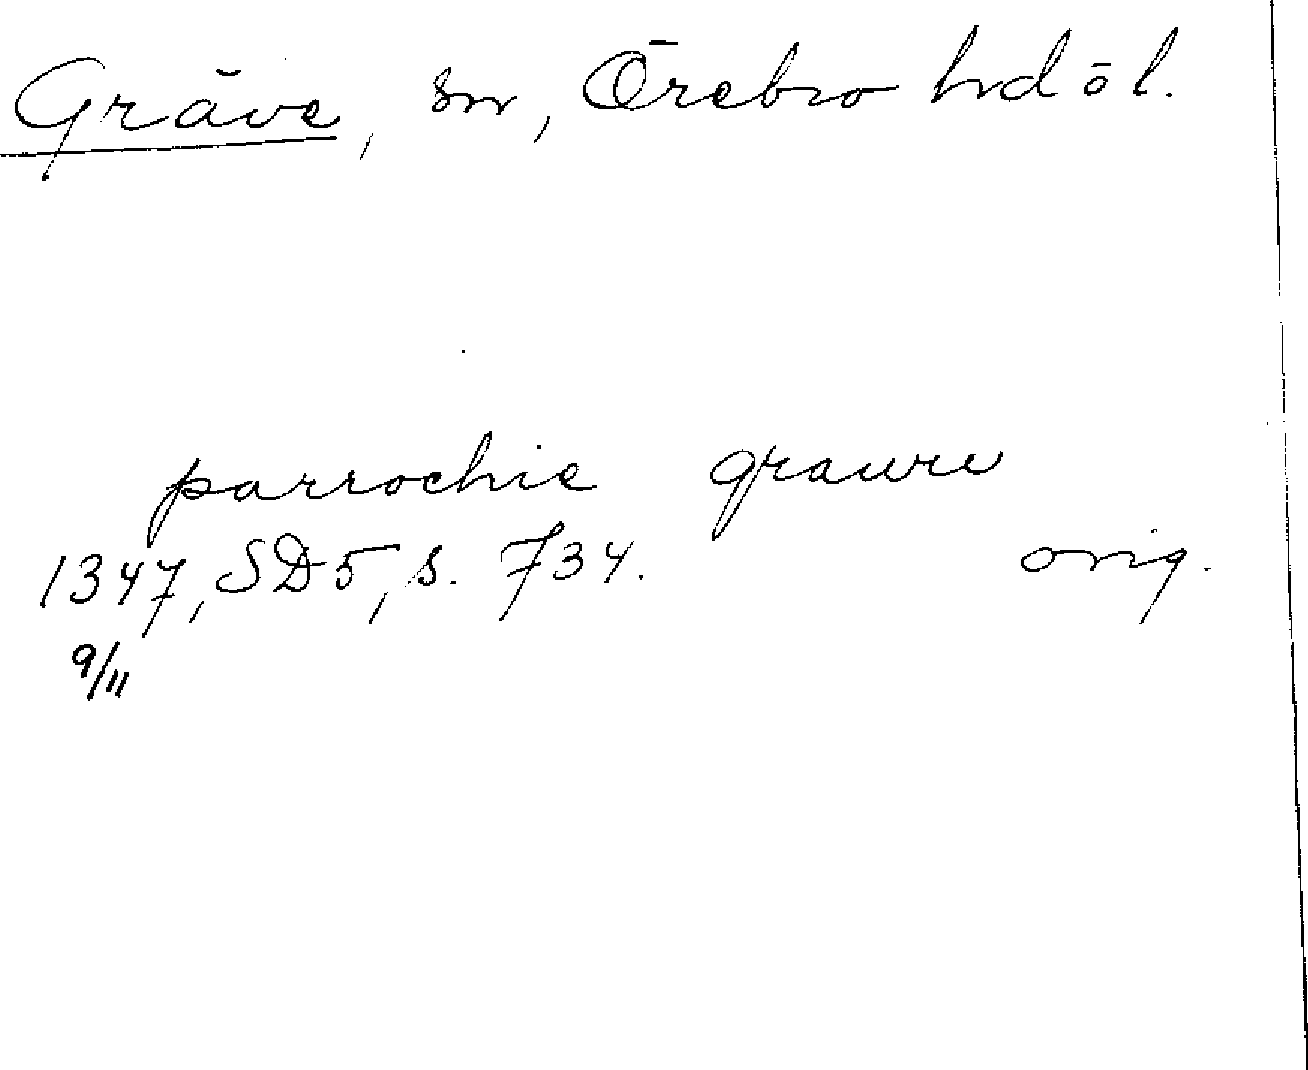 Gräve, sn, Örebro hd öl.
parrochie grawu
1347, SD5, s. 734. orig.
9/11